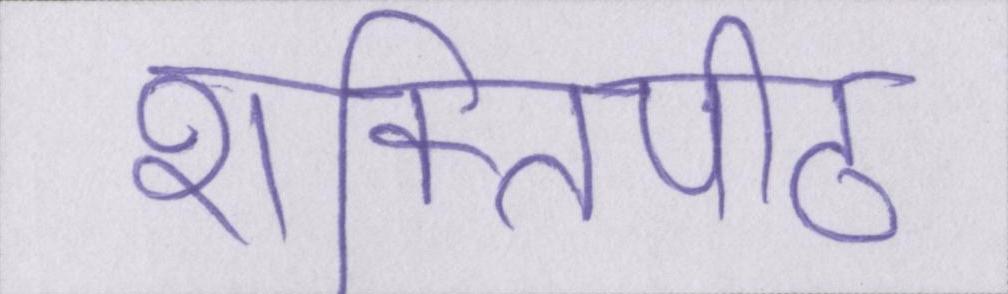 शक्तिपीठ